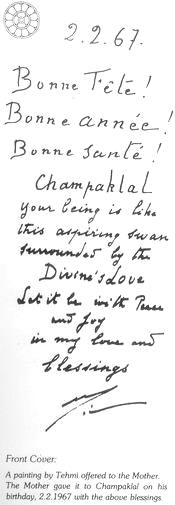 2.2.67.
Bonne Fête!
Bonne année!
Bonne santé!
Champaklal
your being is like
this aspiring swan
surrounded by the
Divine's Love
Let it be with Peace
and Joy
in my love and
blessings
Front Cover:
A painting by Tehmi offered to the Mother.
The Mother gave it to Champaklal on his
birthday, 2.2.1967 with the above blessings.